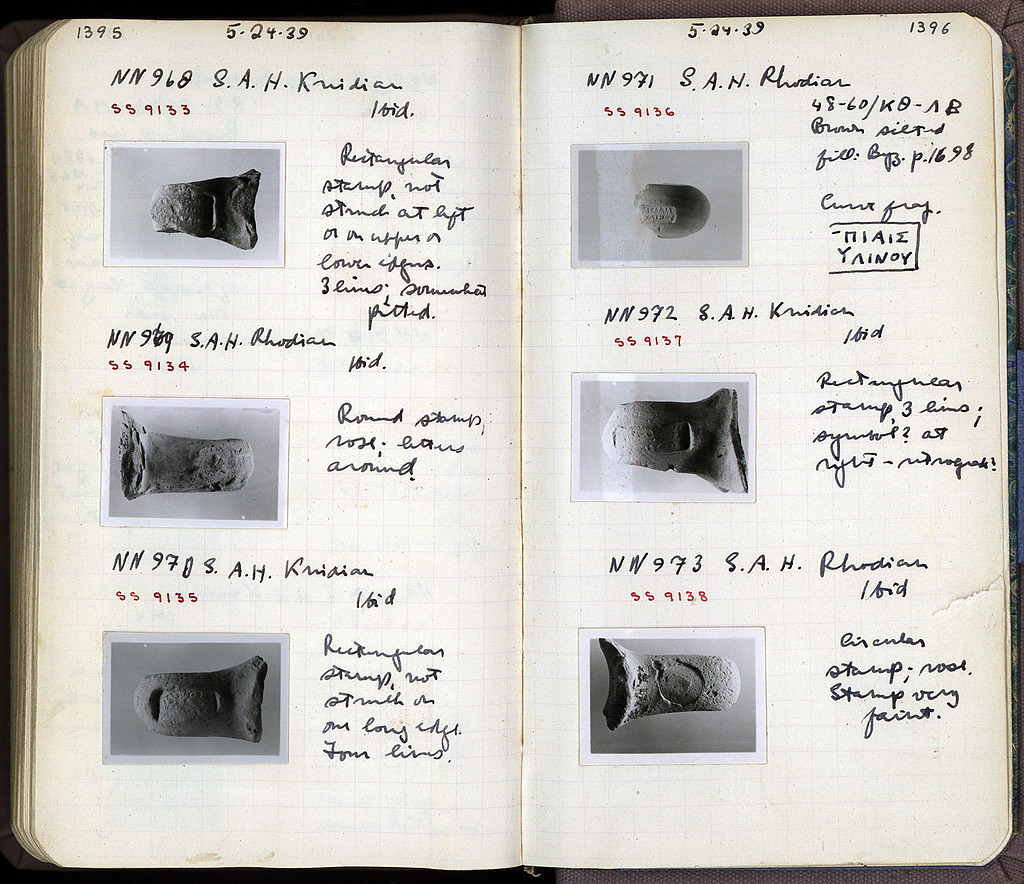 1395
5-24-39
NN968 S.A.H. Knidian
SS 9133
Ibid.
Rectangular
stamp, not
struck at left
or on upper or
lower edges.
3 lines; somewhat
pitted.
NN969 S.A.H. Rhodian
SS 9134
Ibid.
Round stamp,
rose; letters
around.
NN970 S.A.H. Knidian
SS 9135
Ibid
Rectangular
stamp, not
struck on
one long edge.
Four lines.
5-24-39
1396
NN971 S.A.H. Rhodian
SS 9136
48-60/ΚΘ-ΛΒ
Brown silted
fill: Byz. p.1698
Curve frag.
ΠΙΑΙΣ
ΥΛΙΝΟΥ
NN972 S.A.H. Knidian
SS 9137
Ibid
Rectangular
stamp, 3 lines;
symbol? at
right - retrograde?
NN973 S.A.H. Rhodian
SS 9138
Ibid
Circular
stamp; rose.
Stamp very
faint.